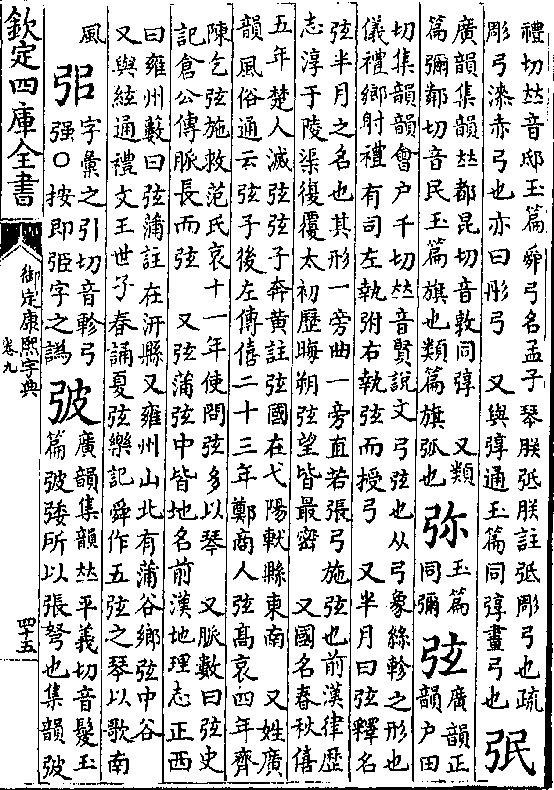 欽定四庫全書
御定康熙字典
卷九
四十五
禮切𠀤音邸玉篇舜弓名孟子琴朕弤朕註弤彫弓也疏
彫弓漆赤弓也亦曰彤弓 又與弴通玉篇同弴畫弓也
廣韻集韻𠀤都昆切音敦同弴 又類
篇彌鄰切音民玉篇旗也類篇旗弧也
弥
玉篇
同彌
弦
廣韻正
韻户田
切集韻韻會户千切𠀤音賢說文弓弦也从弓象絲軫之形也
儀禮鄉射禮有司左執弣右執弦而授弓 又半月曰弦釋名
弦半月之名也其形一旁曲一旁直若張弓施弦也前漢律歷
志淳于陵渠復覆太初歷晦朔弦望皆最密 又國名春秋僖
五年楚人滅弦弦子奔黄註弦國在弋陽軑縣東南 又姓廣
韻風俗通云弦子後左傳僖二十三年鄭商人弦高哀四年齊
陳乞弦施救范氏哀十一年使問弦多以琴 又脈數曰弦史
記倉公傳脈長而弦 又弦蒲弦中皆地名前漢地理志正西
曰雍州藪曰弦蒲註在汧縣又雍州山北有蒲谷鄉弦中谷
又與絃通禮文王世子春誦夏弦樂記舜作五弦之琴以歌南
風
字彙之引切音軫弓
强○按即弫字之譌
廣韻集韻𠀤平義切音髲玉
篇所以張弩也集韻